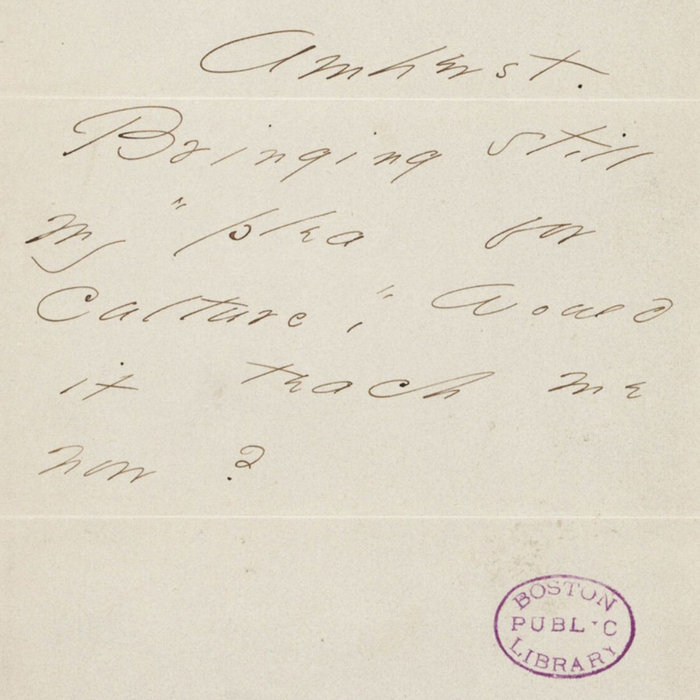 Amherst.
Bringing still
my "plea for
Culture", Would
it teach me
now?
BOSTON
PUBLIC
LIBRARY